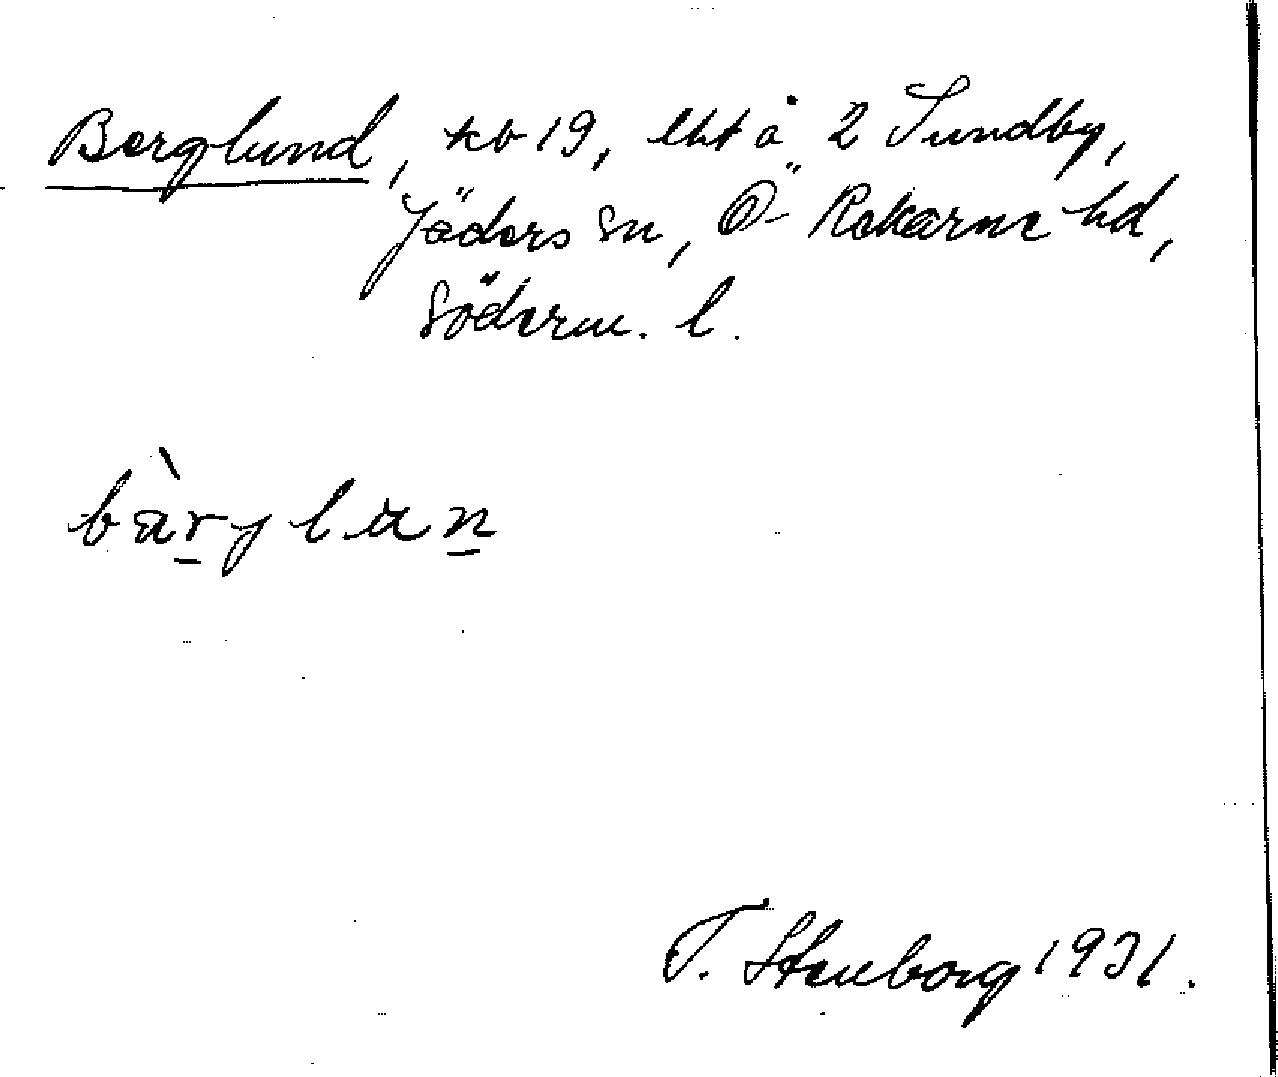 Berglund, tb 19, lht å 2 Sundby,
Jäders sn, Ö. Rekarne hd,
Söderm. l.
bàrjlun
T. Stenborg 1931.